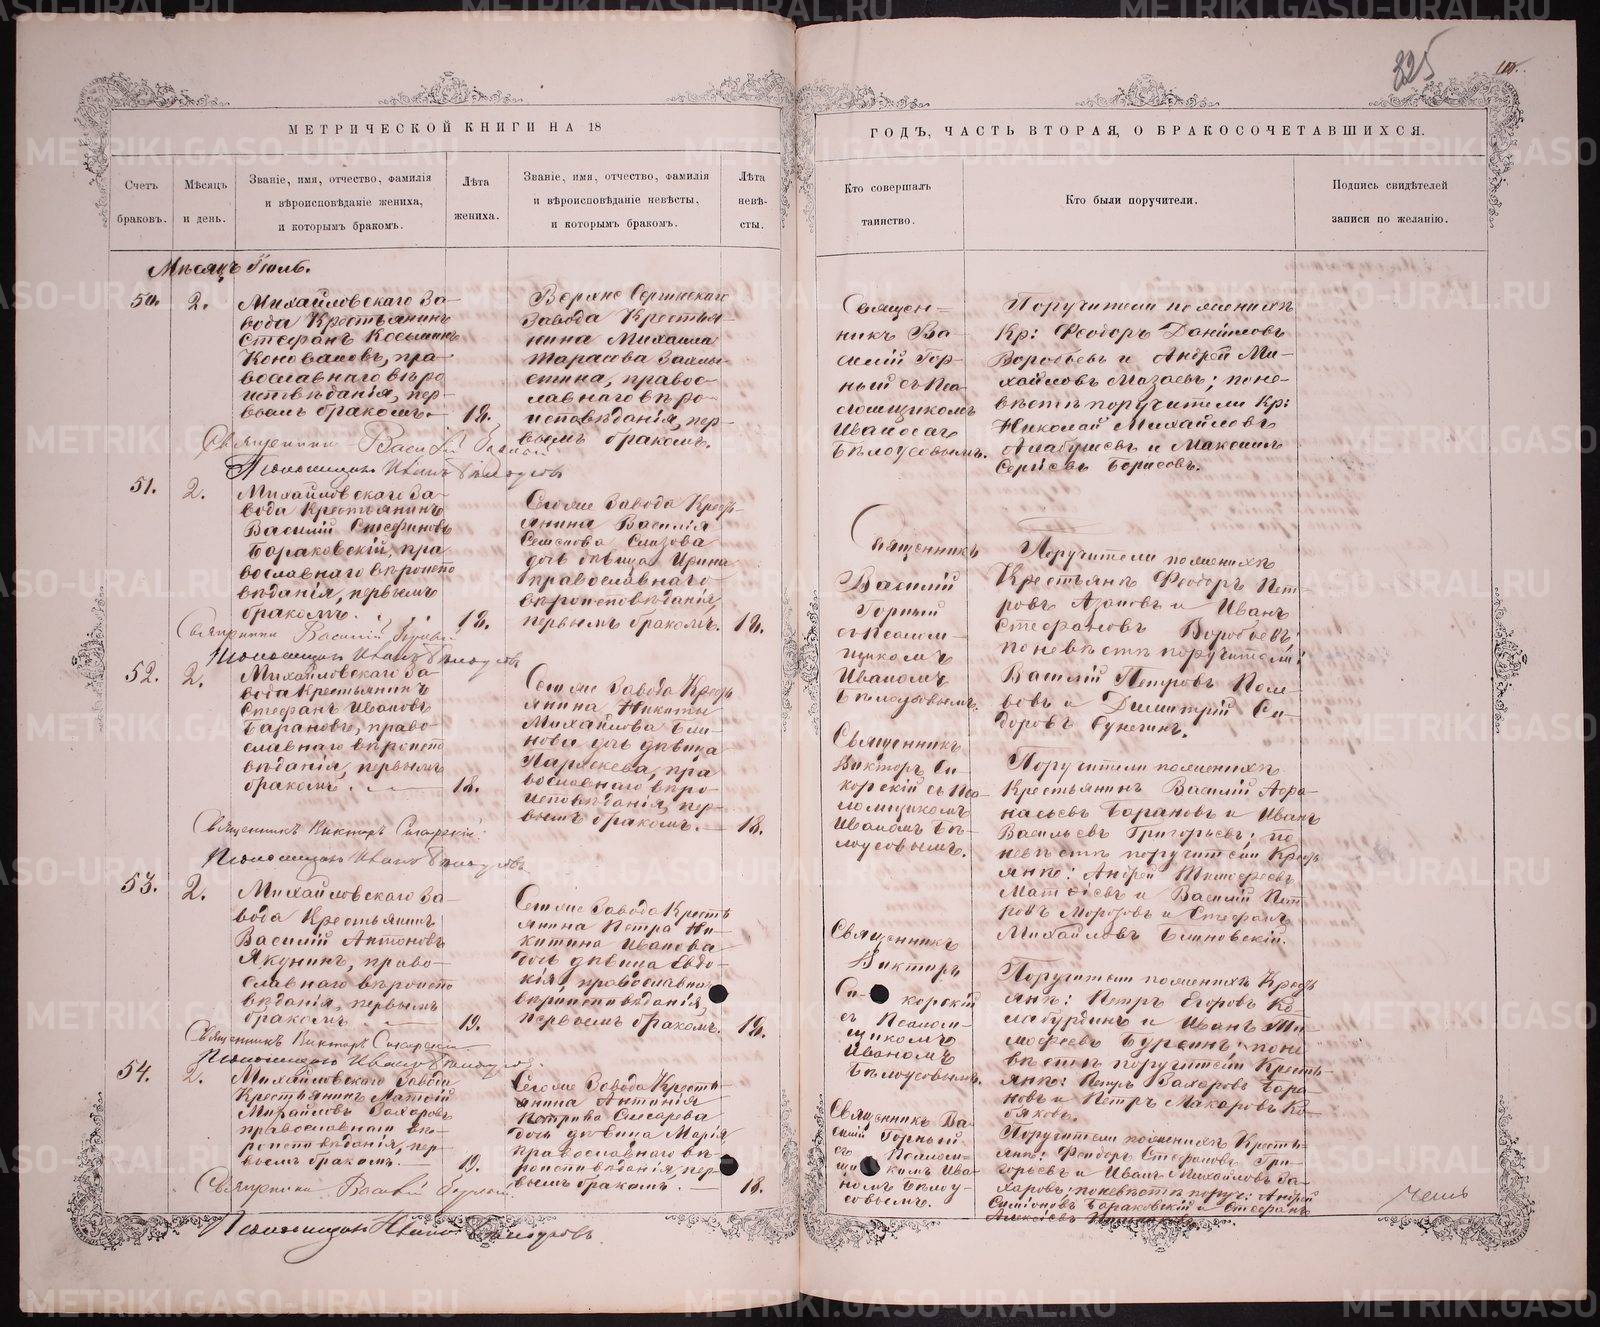 325
МЕТРИЧЕСКОЙ КНИГИ НА 18
ГОДЪ, ЧАСТЬ ВТОРАЯ, О БРАКОСОЧЕТАВШИХСЯ.
Счетъ
браковъ.
Мѣсяцъ
и день.
Званіе, имя, отчество, фамилія
и вѣроисповѣданіе жениха,
и которымъ бракомъ.
Лѣта
жениха.
Званіе, имя, отчество, фамилія
и вѣроисповѣданіе невѣсты,
и которымъ бракомъ.
Лѣта
невѣ-
сты.
Кто совершалъ
таинство.
Кто были поручители.
Подпись свидѣтелей
записи по желанію.
Мѣсяцъ Іюль.
50.
2.
Михайловскаго За-
вода Крестьянинъ
Стефанъ Косьминъ
Коноваловъ, пра-
вославнаго вѣро
исповѣданія, пер-
вымъ бракомъ.
18.
Верхне Сергинскаго
Завода Крестья-
нина Михаила
Тарасова
православ-
наго вѣро-
исповѣданія, пер-
вымъ бракомъ.
Священ-
никъ Ва-
силій Гор-
ный съ Пса-
ломщикомъ
Иваномъ
Бѣлоусовымъ.
Поручители по женихѣ
Кр: Феодоръ Даниловъ
Воробьевъ и Андрей Ми-
хайловъ Мазаевъ; по не-
вѣстѣ поручители Кр:
Николай Михайловъ
Алабушевъ и Максимъ
Сергіевъ Борисовъ.
Священникъ Василій Горный
Псаломщикъ Иванъ Бѣлоусовъ
51.
2.
Михайловскаго За-
вода Крестьянинъ
Василій Стефановъ
Бараковскій, пра
вославнаго вѣроиспо
вѣданія, первымъ
бракомъ.
18.
Сегоже Завода Кресть-
янина Василія
Семенова Слизова
дочь дѣвица Ирина
православнаго
вѣроисповѣданія,
первымъ бракомъ.
18.
Священникъ
Василій
Горный
съ Псалом-
щикомъ
Иваномъ
Бѣлоусовымъ.
Поручители по женихѣ
Крестьянѣ Феодоръ Пет-
ровъ Азановъ и Иванъ
Стефановъ Воробьевъ;
по невѣстѣ поручители:
Василій Петровъ Поле-
вовъ и Димитрій Си-
доровъ Сунегинъ.
Священникъ Василій Горный
Псаломщикъ Иванъ Бѣлоусовъ
52.
2.
Михайловскаго За-
вода Крестьянинъ
Стефанъ Ивановъ
Барановъ, право-
славнаго вѣроиспо
вѣданія, первымъ
бракомъ.
18.
Сегоже Завода Кресть
янина Никиты
Михайлова Бли-
нова дочь дѣвица
Параскева, пра
вославнаго вѣро-
исповѣданія, пер-
вымъ бракомъ.
18.
Священникъ
Викторъ Си-
корскій съ Пса-
ломщикомъ
Иваномъ Бѣ-
лоусовымъ.
Поручители по женихѣ
Крестьянинъ Василій Афа-
насьевъ Барановъ и Иванъ
Васильевъ Григорьевъ; по
невѣстѣ поручители Кресть
янѣ: Андрей Тимофеевъ
Матфіевъ и Василій Пет
ровъ Морозовъ и Стефанъ
Михайловъ Блиновскій.
Священникъ Викторъ Сикорскій
Псаломщикъ Иванъ Бѣлоусовъ
53.
2.
Михайловскаго За-
вода Крестьянинъ
Василій Антоновъ
Якунинъ, право-
славнаго вѣроиспо
вѣданія, первымъ
бракомъ.
19.
Сегоже Завода Кресть
янина Петра Ни-
китина Иванова
дочь дѣвица Евдо-
кія, православнаго
вѣроисповѣданія,
первымъ бракомъ.
18.
Священникъ
Викторъ
Си-корскій
съ Псалом-
щикомъ
Иваномъ
Бѣлоусовымъ.
Поручители по женихѣ Кресть
янѣ: Петръ Егоровъ Ко-
лабурдинъ и Иванъ Ти-
мофеевъ Бурсинъ; по не
вѣстѣ поручители Кресть-
янѣ: Петръ Захаровъ Бара
новъ и Петръ Макаровъ Ко-
бяковъ.
Священникъ Викторъ Сикорскій
Псаломщикъ Иванъ Бѣлоусовъ.
54.
2.
Михайловскаго Завода
Крестьянинъ Матфій
Михайловъ Захаровъ
православнаго вѣ-
роисповѣданія, пер-
вымъ бракомъ.
19.
Сегоже Завода Кресть-
янина Антонія
Петрова Слесарева
дочь дѣвица Марія
православнаго вѣ-
роисповѣданія, пер-
вымъ бракомъ.
18.
Священникъ Ва-
силій Горный
съ Псалом-
щикомъ Ива-
номъ Бѣлоу-
совымъ.
Поручители по женихѣ Кресть-
янѣ: Феодоръ Стефановъ Гри-
горьевъ и Иванъ Михайловъ За-
харовъ; по невѣстѣ поруч: Андрей
Симіоновъ Бараковскій и Стефанъ
Алексіевъ
Священникъ Василій Горный
Псаломщикъ Иванъ Бѣлоусовъ.
METRIKI.GASO-URAL.RU